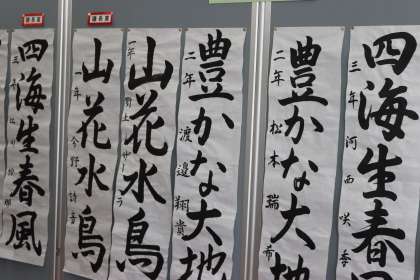 四海生春風
三年 河西咲季
豊かな大地
二年 松本瑞希
豊かな大地
二年 渡邉翔貴
山花水鳥
一年
山花水鳥
一年 今野詩音
四海生春風
三年